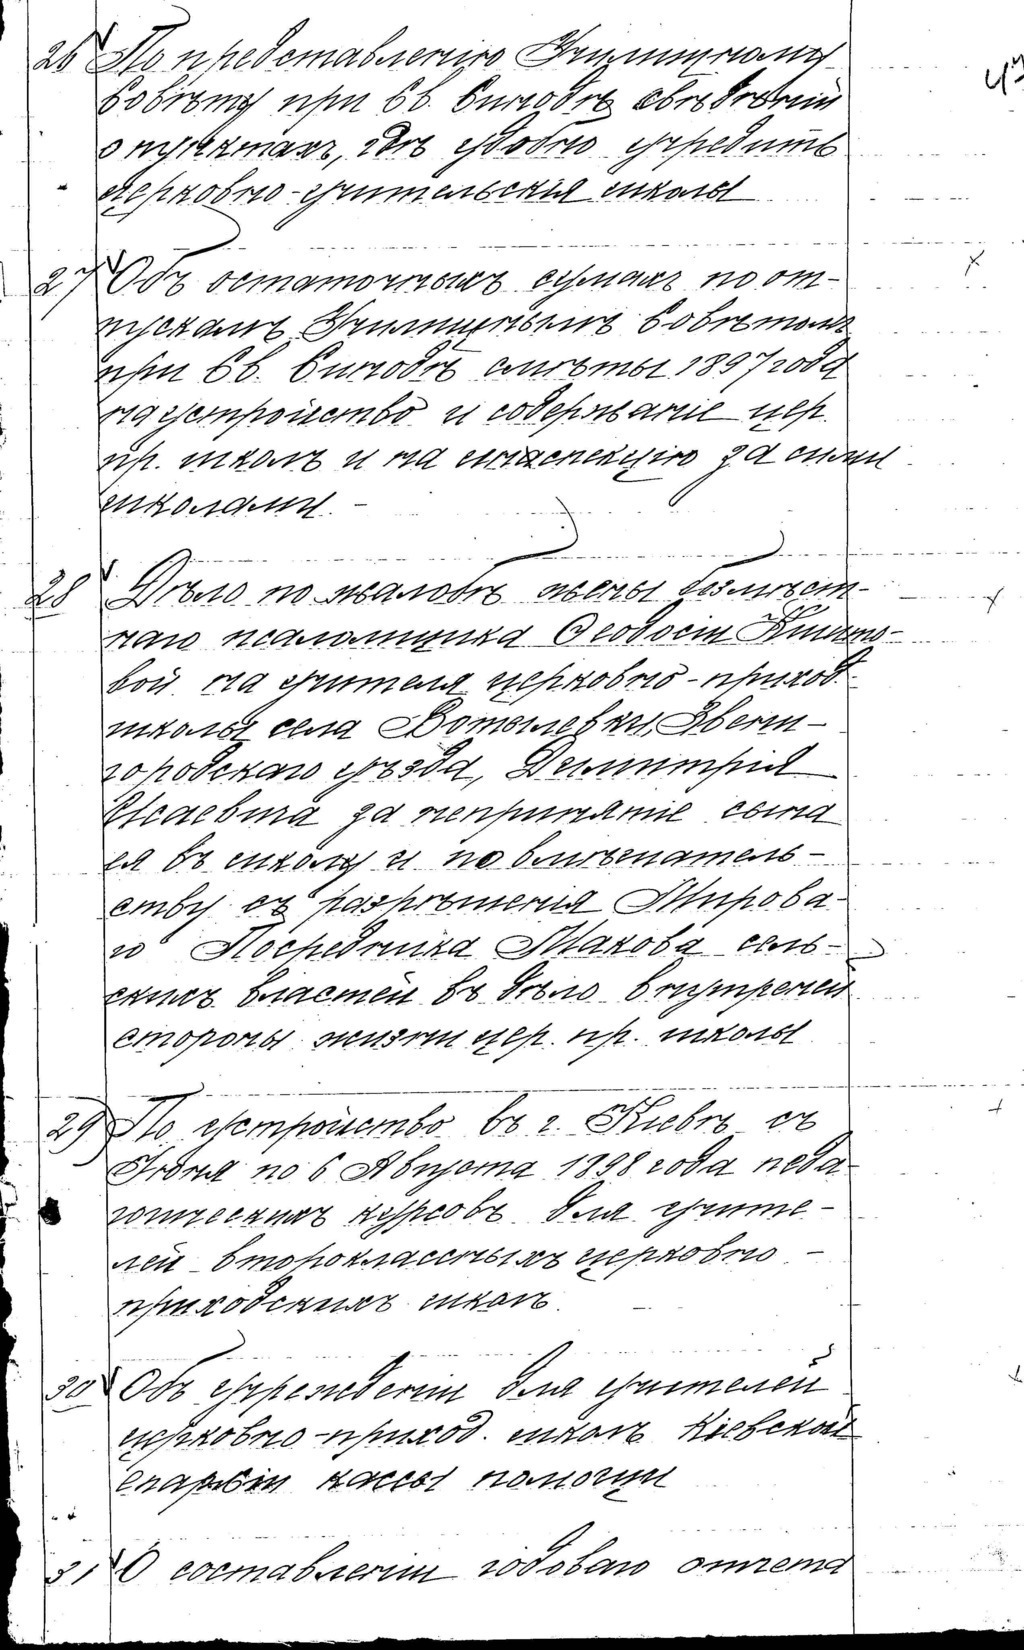 26 По представленію Училищному
Совѣту при Св. Синодѣ свѣдѣній
о пунктахъ, гдѣ удобно учредить
церковно-учительскія школы
27 Объ остаточныхъ сумахъ по от-
пускамъ Училищнымъ Совѣтомъ
при Св. Синодѣ смѣты 1897 года
на устройство и содержаніе цер.
пр. школъ и на инспекцію за сими
школами. -
28 Дѣло по жалобѣ жены безмѣст-
наго псаломщика Ѳеодосіи
вой на учителя церковно-приход.
школы села Вотылевки, Звени-
городскаго уѣзда, Димитрія
Исаевича за непринятіе сына
ея въ школу и по вмѣшатель-
ству съ разрѣшенія Мирова-
го Посредника Макова сель-
скихъ властей въ дѣло внутреней
стороны жизни цер. пр. школы
29 По устройство въ г. Кіевѣ съ
Іюня по 6 Августа 1898 года педа-
гогическихъ курсовъ для учите-
лей второклассныхъ церковно-
приходскихъ школъ.
30 Объ учрежденіи для учителей
церковно-приход. школъ Кіевской
епархіи кассы помощи
31 О составленіи годоваго отчета